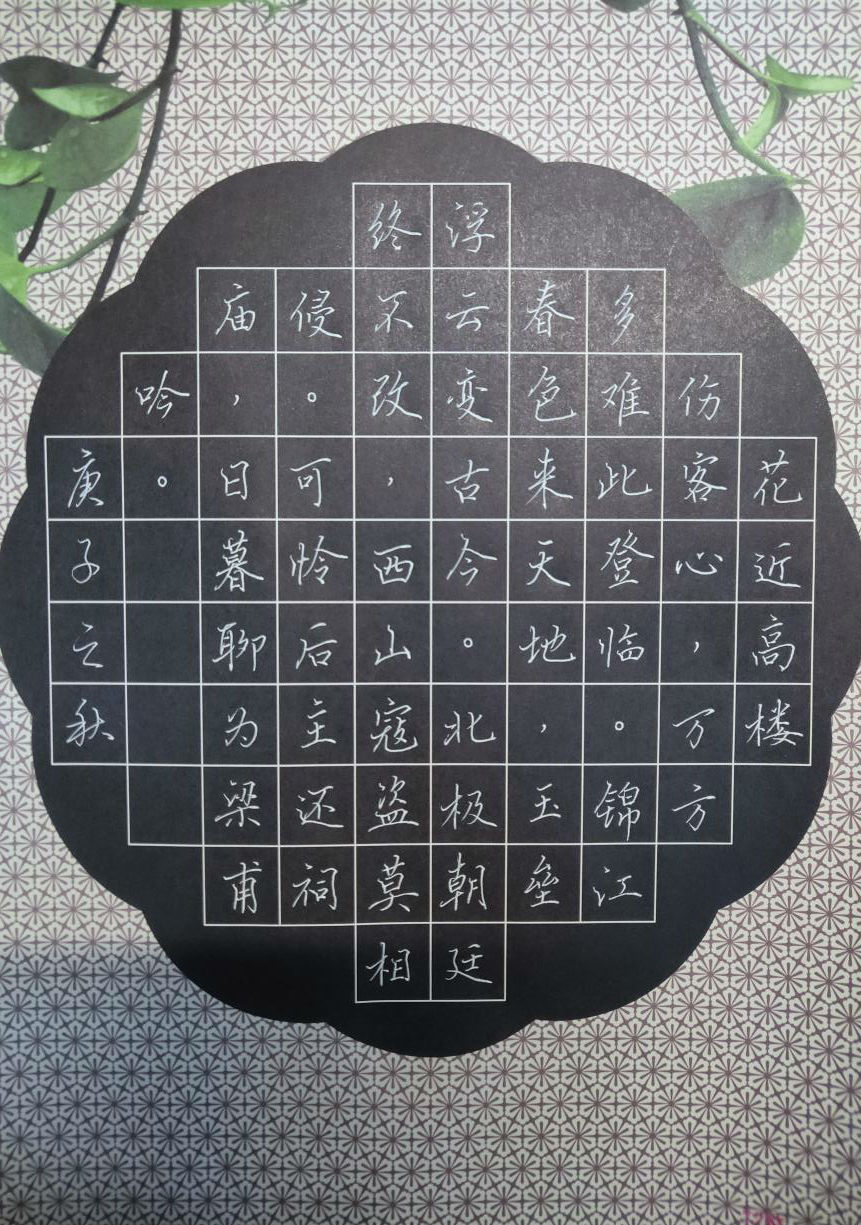 花近高楼
伤客心，万方
多难此登临。锦江
春色来天地，玉垒
浮云变古今。北极朝廷
终不改，西山寇盗莫相
侵。可怜后主还祠
庙，日暮聊为梁甫
吟。
庚子之秋